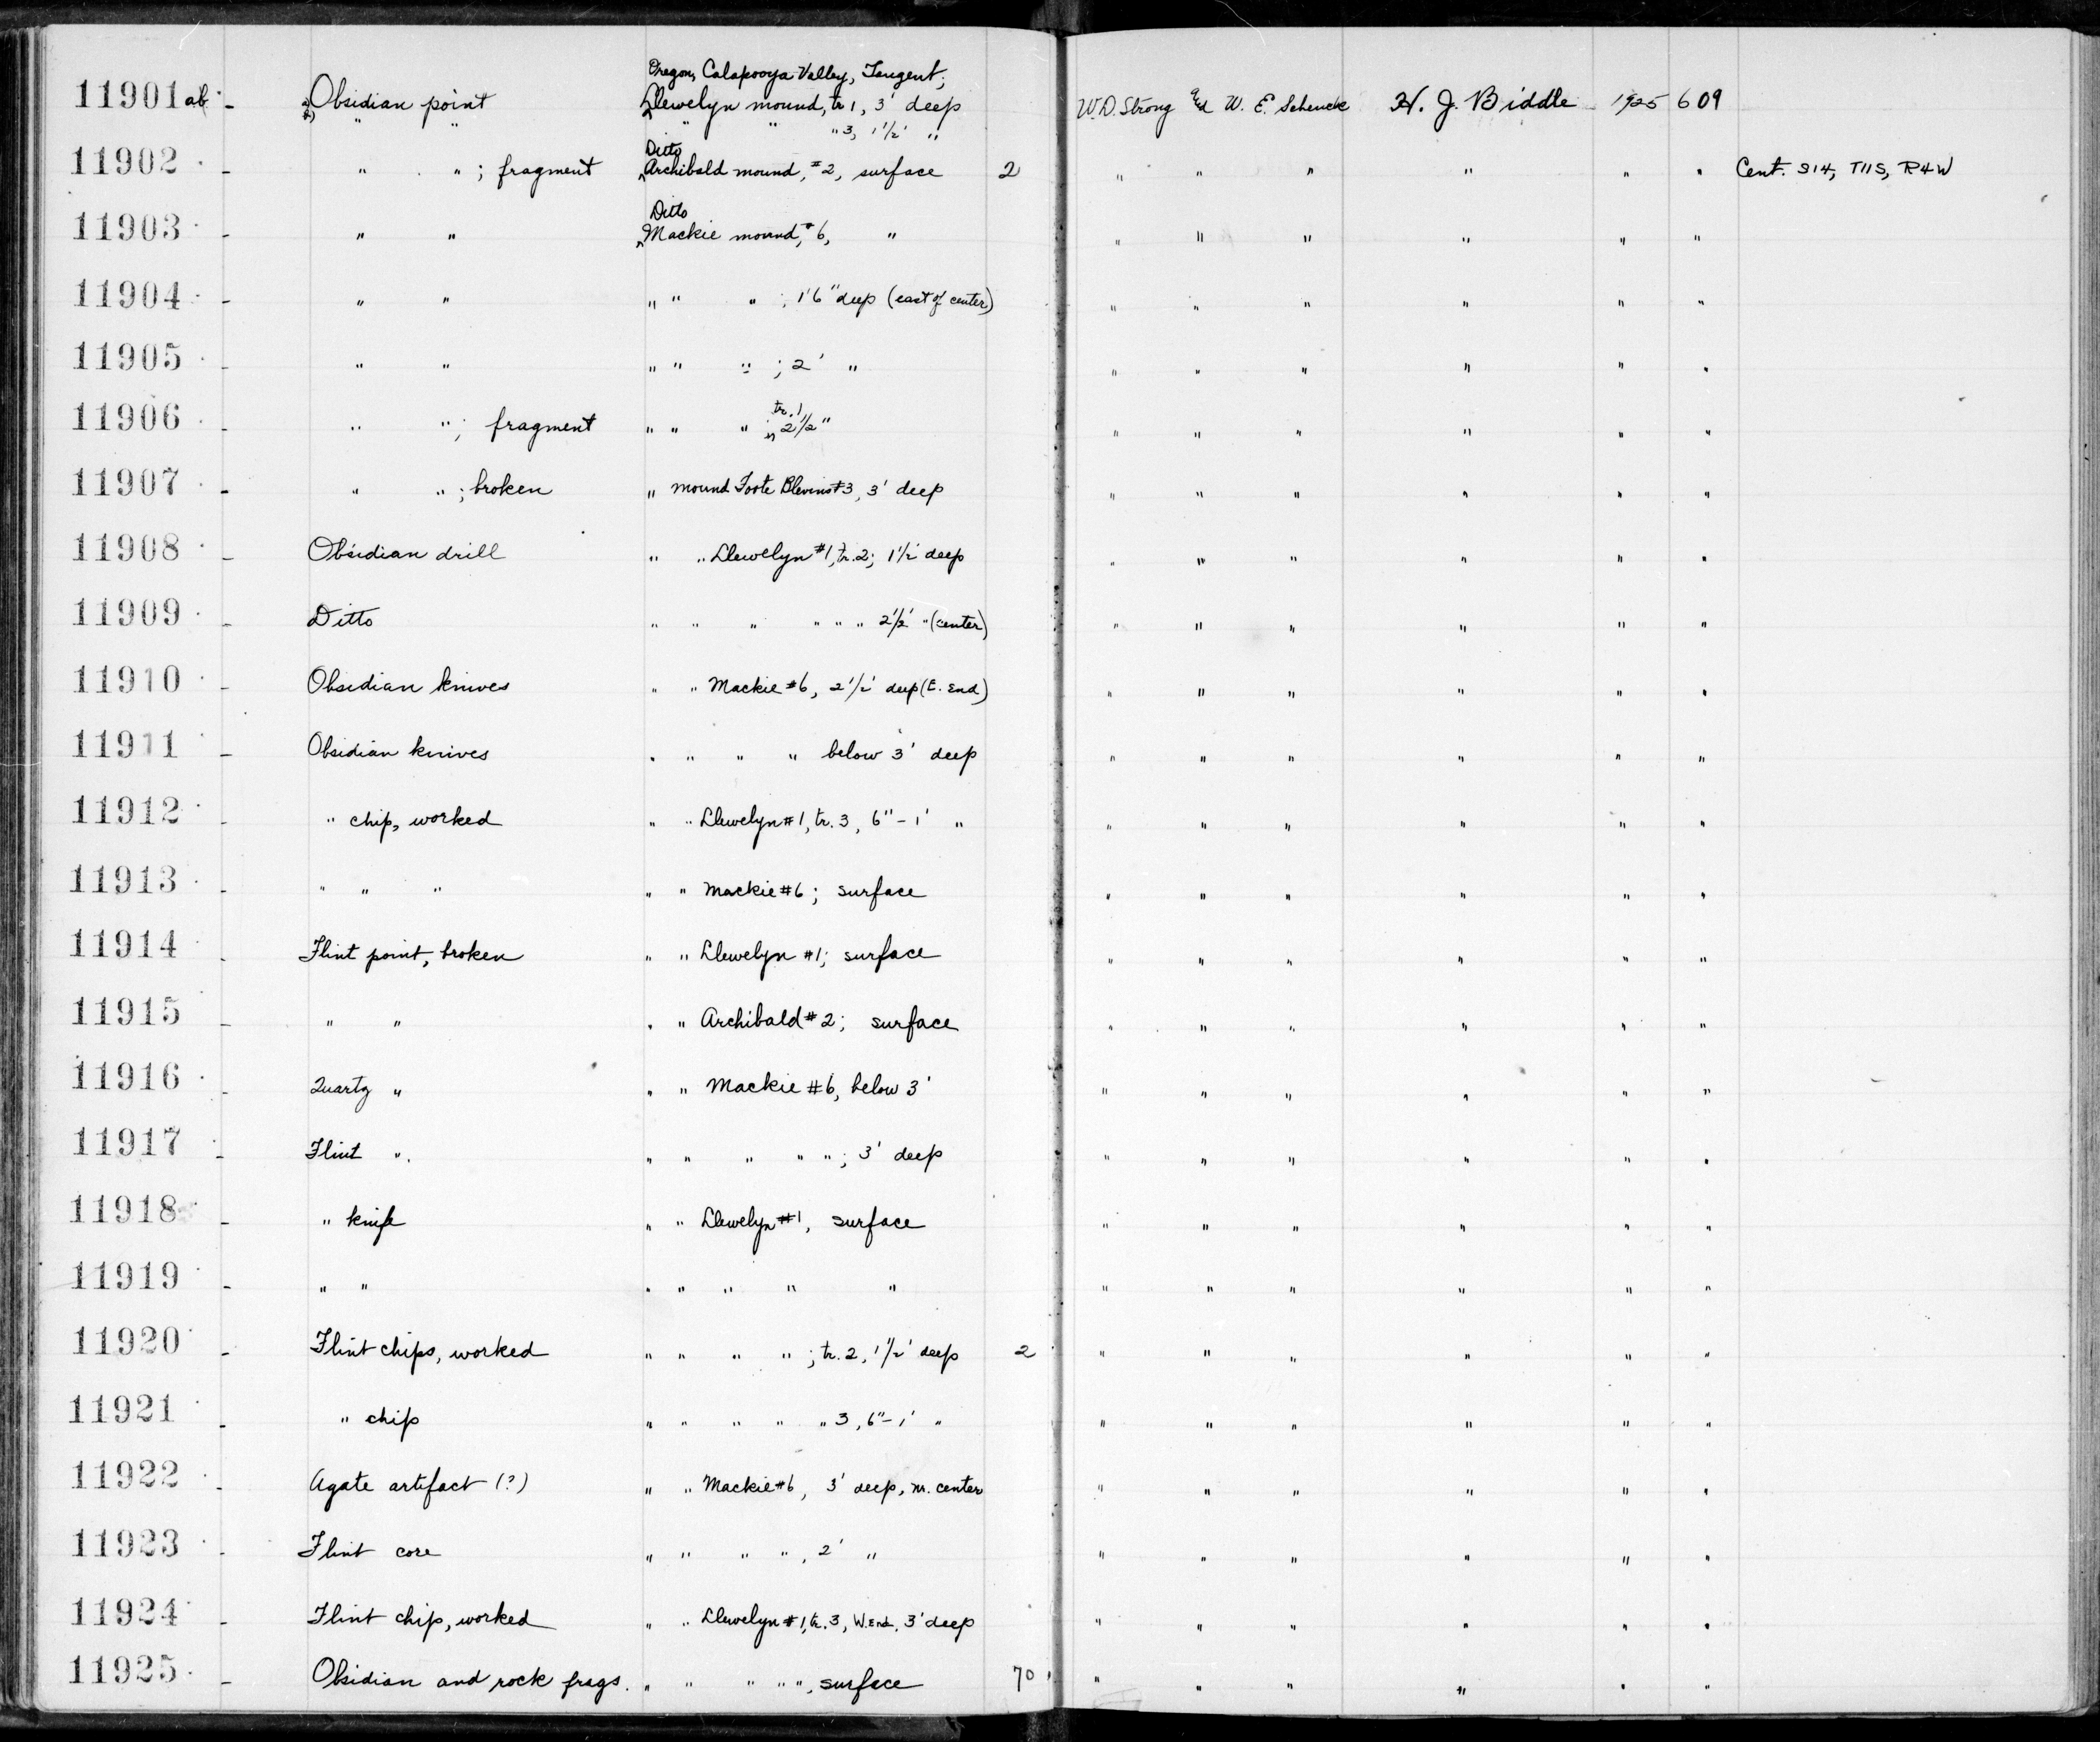 Oregon, Calapooya Valley, Tangent;
11901ab - a) Obsidian point Llewelyn mound, tr 1, 3' deep W.D. Strong and W. E. Schenck H. J. Biddle 1925 609
b) " " " " " 3, 1 1/2' "
Ditto
11902 - " " ; fragment Archibald mound, #2, surface 2 " " " " " " Cent. S14, T11S, R4W
Ditto
11903 - " " Mackie mound, #6, " " " " " " "
11904 - " " " " " ; 1'6" deep (east of center) " " " " " "
11905 - " " " " " ; 2' " " " " " " "
tr. 1
11906 - " " ; fragment " " " ; 2 1/2 " " " " " " "
11907 - " " ; broken " mound Foote Blevins #3, 3' deep " " " " " "
11908 - Obsidian drill " " Llewelyn #1, tr. 2; 1 1/2' deep " " " " " "
11909 - Ditto " " " " " " 2 1/2' " (center) " " " " " "
11910 - Obsidian knives " " Mackie #6, 2 1/2' deep (E. End) " " " " " "
11911 - Obsidian knives " " " " below 3' deep " " " " " "
11912 - " chip, worked " " Llewelyn #1, tr. 3, 6" - 1' " " " " " " "
11913 - " " " " " Mackie #6; surface " " " " " "
11914 - Flint point, broken " " Llewelyn #1; surface " " " " " "
11915 - " " " " Archibald #2; surface " " " " " "
11916 - Quartz " " " Mackie #6, below 3' " " " " " "
11917 - Flint " " " " " " ; 3' deep " " " " " "
11918 - " knife " " Llewelyn #1, surface " " " " " "
11919 - " " " " " " " " " " " " "
11920 - Flint chips, worked " " " " ; tr. 2, 1 1/2' deep 2 " " " " " "
11921 - " chip " " " " " 3, 6" - 1' " " " " " " "
11922 - Agate artifact (?) " " Mackie #6, 3' deep, nr. center " " " " " "
11923 - Flint core " " " " , 2' " " " " " " "
11924 - Flint chip, worked " " Llewelyn #1, tr. 3, W. End, 3' deep " " " " " "
11925 - Obsidian and rock frags. " " " " " , surface 70 " " " " " "